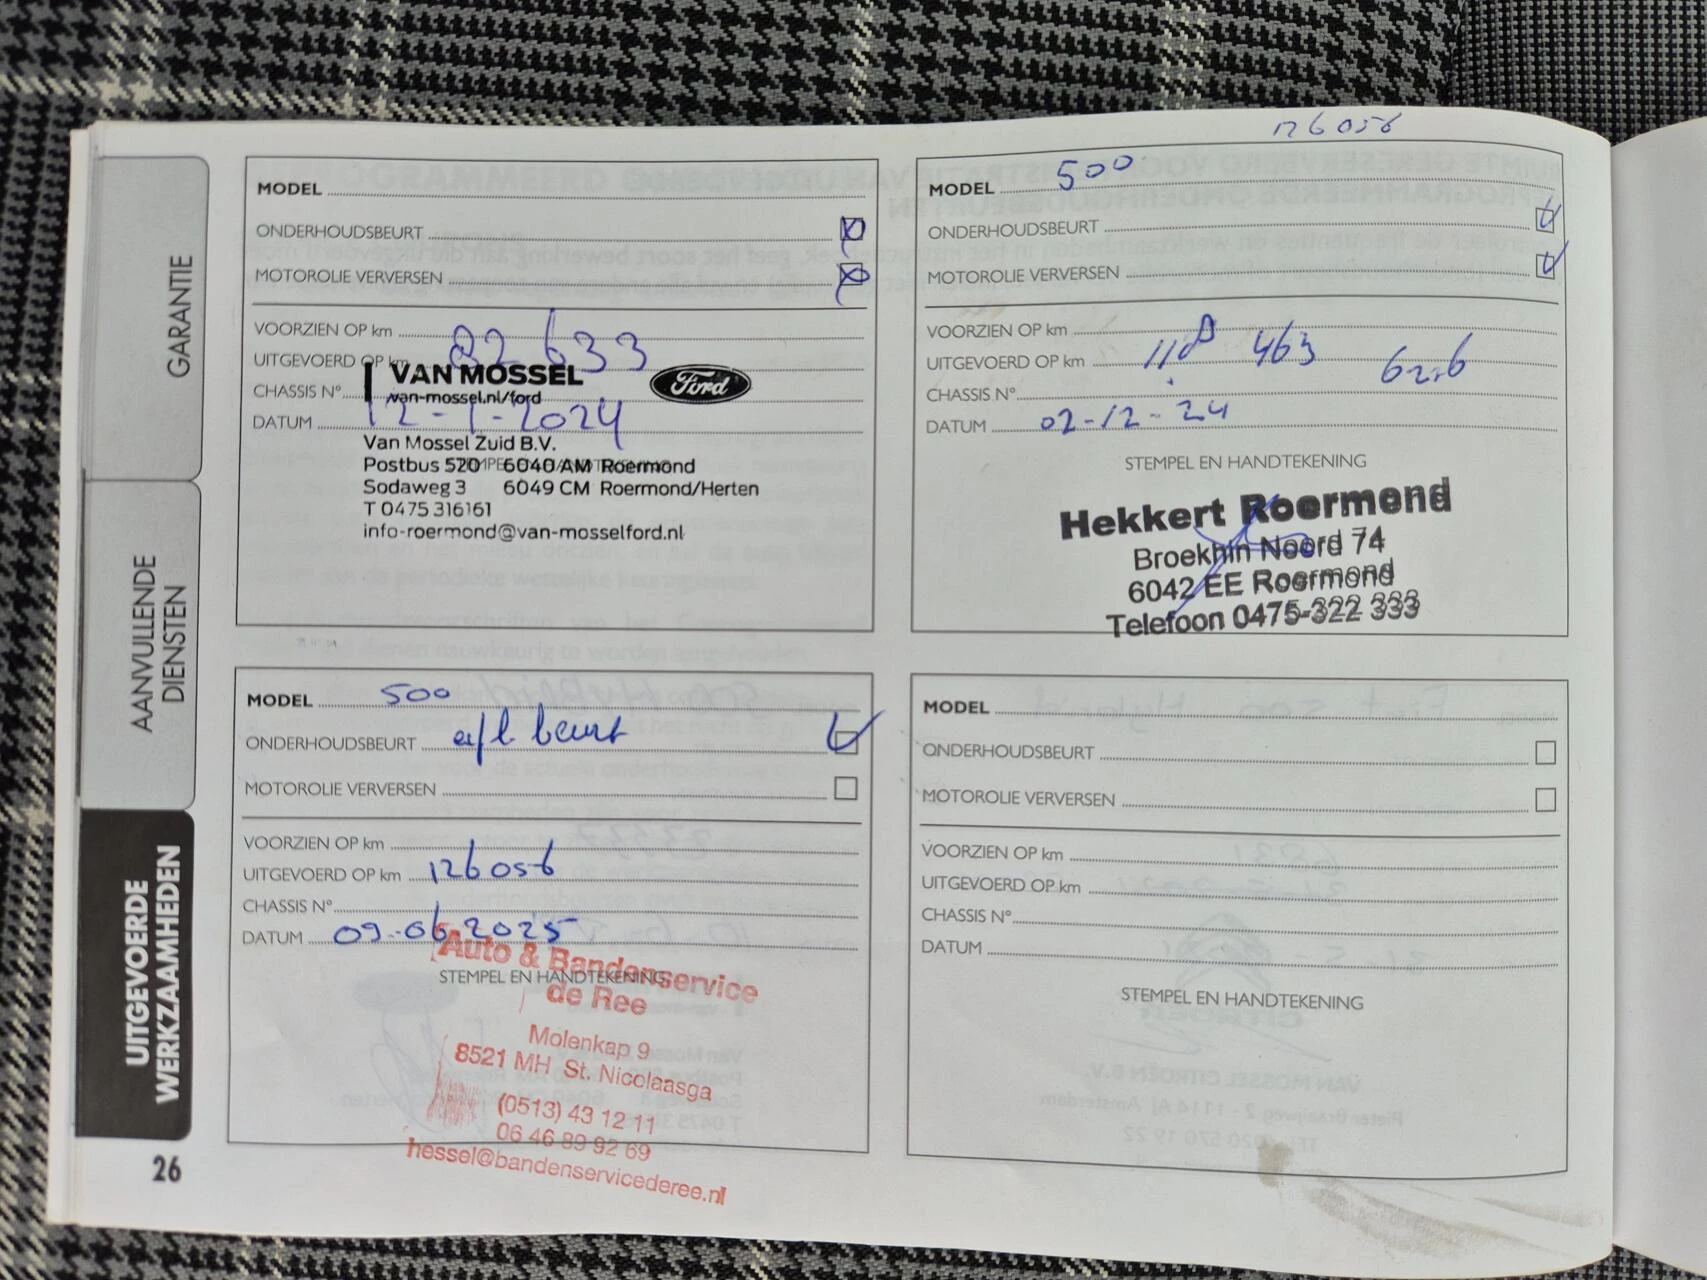 126056
GARANTIE
AANVULLENDE
DIENSTEN
UITGEVOERDE
WERKZAAMHEDEN
MODEL
ONDERHOUDSBEURT
MOTOROLIE VERVERSEN
VOORZIEN OP km
UITGEVOERD OP km 82 633
CHASSIS N°
DATUM 12-1-2024
VAN MOSSEL Ford
van-mossel.nl/ford
Van Mossel Zuid B.V.
Postbus 520 6040 AM Roermond
Sodaweg 3 6049 CM Roermond/Herten
T 0475 316161
info-roermond@van-mosselford.nl
MODEL 500
ONDERHOUDSBEURT
MOTOROLIE VERVERSEN
VOORZIEN OP km
UITGEVOERD OP km 118 463
CHASSIS N°
DATUM 02-12-24
STEMPEL EN HANDTEKENING
Hekkert Roermond
Broekhin Noord 74
6042 EE Roermond
Telefoon 0475-322 333
MODEL 500
ONDERHOUDSBEURT beurt
MOTOROLIE VERVERSEN
VOORZIEN OP km
UITGEVOERD OP km 126056
CHASSIS N°
DATUM 09-06-2025
STEMPEL EN HANDTEKENING
Auto & Bandenservice
de Ree
Molenkap 9
8521 MH St. Nicolaasga
(0513) 43 12 11
06 46 89 92 69
hessel@bandenservicederee.nl
MODEL
ONDERHOUDSBEURT
MOTOROLIE VERVERSEN
VOORZIEN OP km
UITGEVOERD OP km
CHASSIS N°
DATUM
STEMPEL EN HANDTEKENING
26